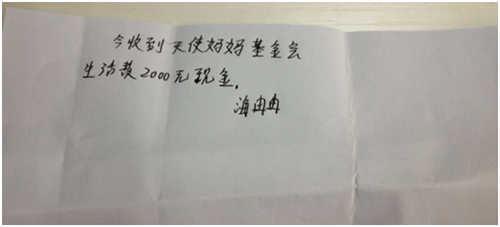 今收到天使妈妈基金会
生活费2000元现金.
海冉冉